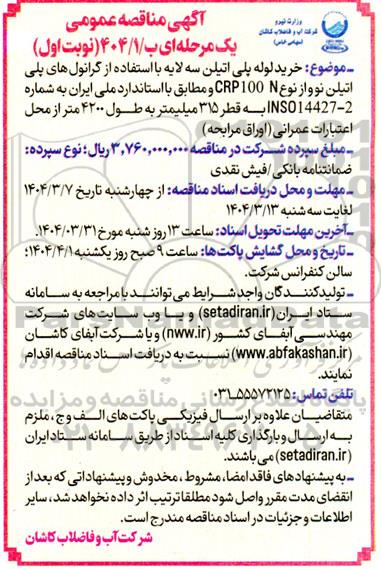 وزارت نیرو
شرکت آب و فاضلاب کاشان
(سهامی خاص)
آگهی مناقصه عمومی
یک مرحله‌ای ب/۴۰۴/۱(نوبت اول)
ـ موضوع: خرید لوله پلی اتیلن سه لایه با استفاده از گرانول‌های پلی
اتیلن نو و از نوع CRP100 N و مطابق با استاندارد ملی ایران به شماره
INSO14427-2 به قطر ۳۱۵ میلیمتر به طول ۴۲۰۰ متر از محل
اعتبارات عمرانی (اوراق مرابحه)
ـ مبلغ سپرده شرکت در مناقصه ۳,۷۶۰,۰۰۰,۰۰۰ ریال؛ نوع سپرده:
ضمانتنامه بانکی/فیش نقدی
ـ مهلت و محل دریافت اسناد مناقصه: از چهارشنبه تاریخ ۱۴۰۴/۳/۷
لغایت سه شنبه ۱۴۰۴/۳/۱۳
ـ آخرین مهلت تحویل اسناد: ساعت ۱۳ روز شنبه مورخ ۱۴۰۴/۰۳/۳۱.
ـ تاریخ و محل گشایش پاکت‌ها: ساعت ۹ صبح روز یکشنبه ۱۴۰۴/۴/۱؛
سالن کنفرانس شرکت.
ـ تولیدکنندگان واجد شرایط می توانند با مراجعه به سامانه
ستاد ایران (setadiran.ir) و یا وب سایت‌های شرکت
مهندسی آبفای کشور (nww.ir) و یا شرکت آبفای کاشان
(www.abfakashan.ir) نسبت به دریافت اسناد مناقصه اقدام
نمایند.
تلفن تماس: ۰۳۱ـ۵۵۵۷۲۱۲۵
متقاضیان علاوه بر ارسال فیزیکی پاکت‌های الف و ج، ملزم
به ارسال و بارگذاری کلیه اسناد از طریق سامانه ستاد ایران
(setadiran.ir) می‌باشند.
ـ به پیشنهادهای فاقد امضا، مشروط، مخدوش و پیشنهاداتی که بعد از
انقضای مدت مقرر واصل شود مطلقا ترتیب اثر داده نخواهد شد، سایر
اطلاعات و جزئیات در اسناد مناقصه مندرج است.
شرکت آب و فاضلاب کاشان